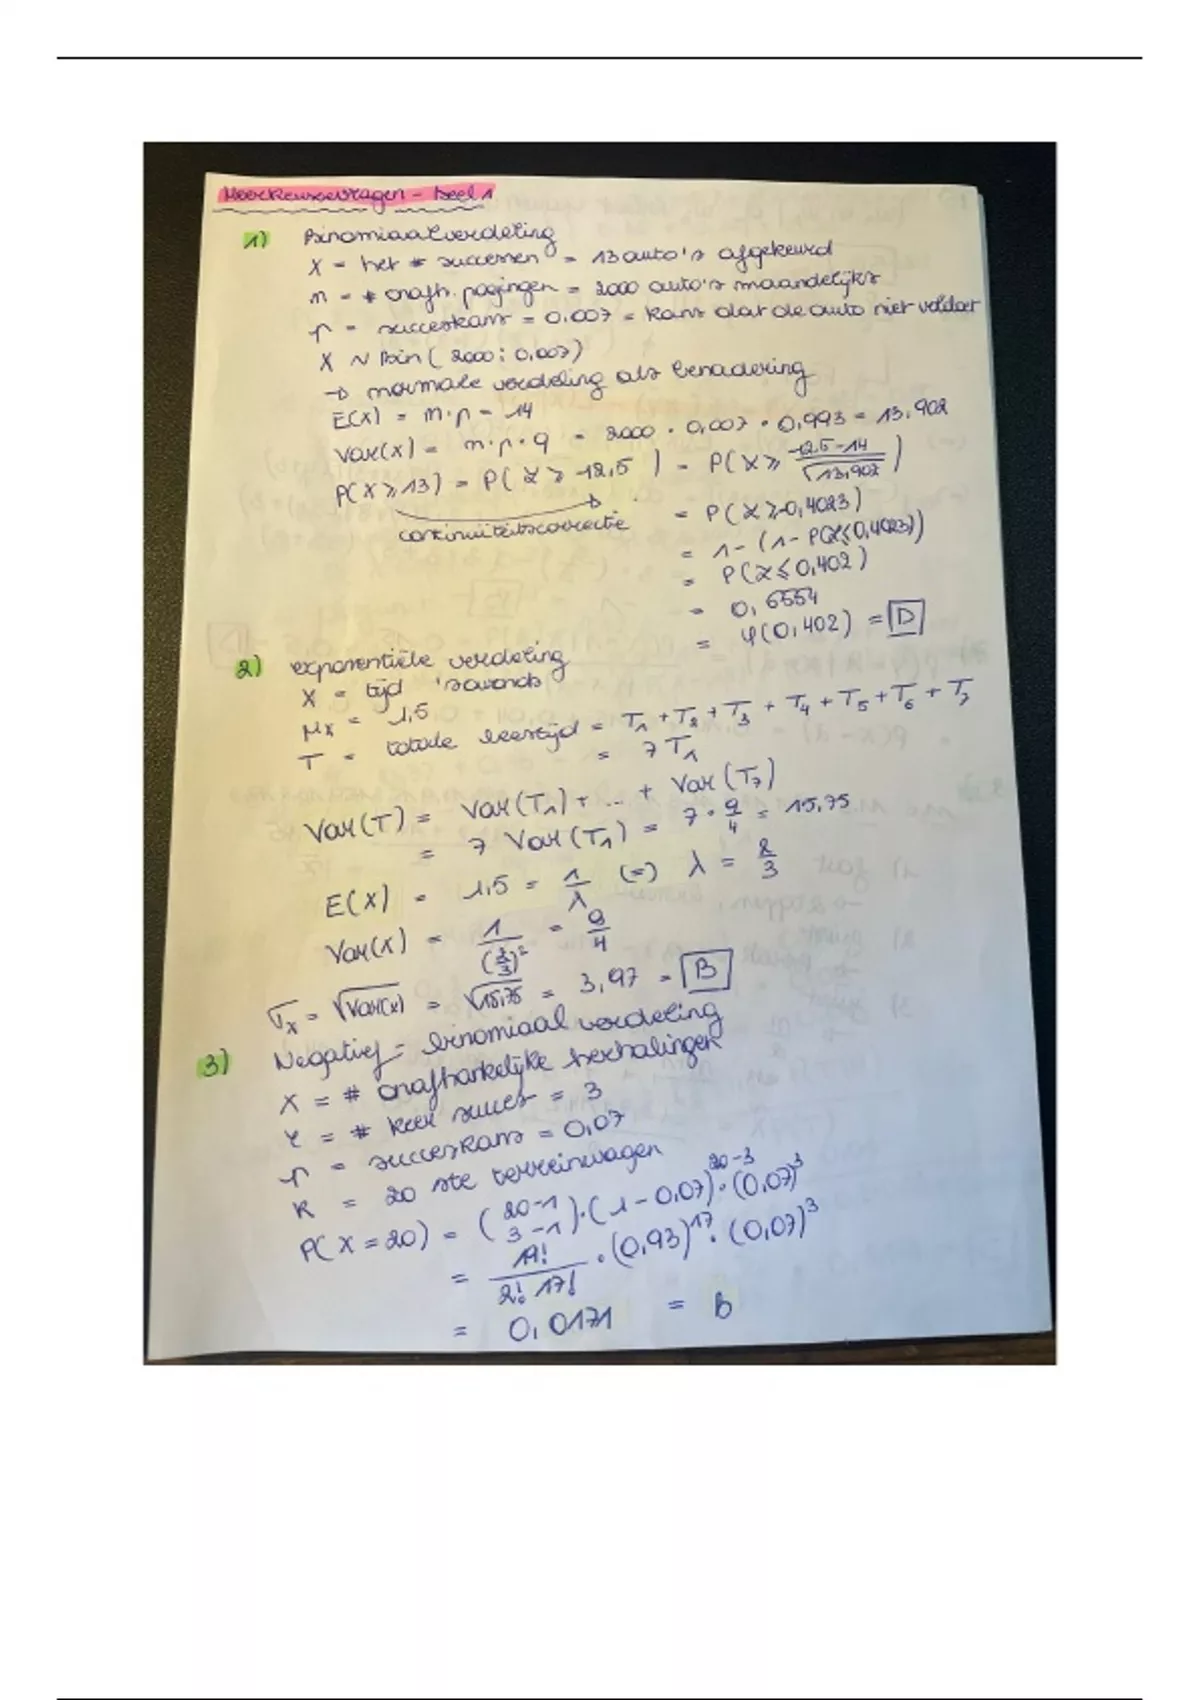 Meerkeuzevragen - Deel 1
1) Binomiaalverdeling
X = het # successen = 13 auto's afgekeurd
n = # onafh. pogingen = 2000 auto's maandelijks
p = succeskans = 0.007 = kans dat de auto niet voldoet
X ~ Bin ( 2000 ; 0,007)
→ normale verdeling als benadering
E(X) = n·p = 14
Var(X) = n·p·q = 2000 · 0,007 · 0,993 = 13,902
P(X ≥ 13) = P( X ≥ 12,5 ) = P( X ≥ (12,5-14)/√13,902 )
continuïteitscorrectie
= P( X ≥ -0,4023)
= 1 - (1 - P(X ≤ 0,4023))
= P(X ≤ 0,402)
= 0,6554
= φ(0,402) = D
2) exponentiële verdeling
X = tijd 's avonds
μx = 1,5
T = totale leestijd = T1 + T2 + T3 + T4 + T5 + T6 + T7
= 7 T1
Var(T) = Var(T1) + ... + Var(T7)
= 7 Var(T1) = 7 · 9/4 = 15,75
E(X) = 1,5 = 1/λ (=) λ = 2/3
Var(X) = 1/(2/3)² = 9/4
σx = √Var(x) = √15,75 = 3,97 = B
3) Negatief - binomiaal verdeling
X = # onafhankelijke herhalingen
r = # keer succes = 3
p = succeskans = 0,07
k = 20 ste terreinwagen
P(X = 20) = (20-1 3-1) · (1 - 0,07)^20-3 · (0,07)³
= 19!/2! 17! · (0,93)^17 · (0,07)³
= 0,0171 = B